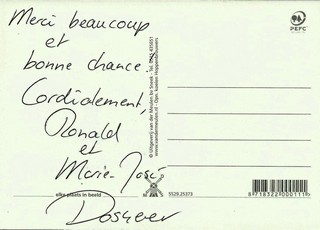 Merci beaucoup
et
bonne chance.
Cordialement
Ronald
et
Marie-José
elke plaats in beeld
© Uitgeverij van der Meulen bv Sneek - Tel.
www.vandermeulen.nl - Opm. koelen Hoppenbrouwers
5529.25373
PEFC
8 718322 000111